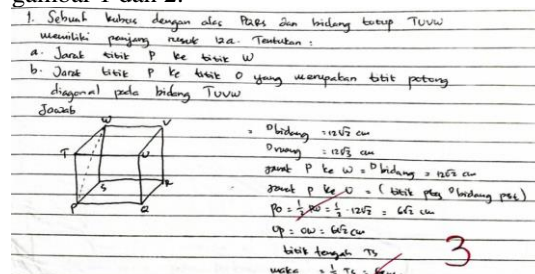 gambar 1 dan 2.
1. Sebuah kubus dengan alas PQRS dan bidang totup TUVW
memiliki panjang rusuk 12a. Tentukan :
a. Jarak titik P ke titik W
b. Jarak titik P ke titik O yang merupakan titit potong
diagonal pada bidang TUVW
Jawab
W V
T U
S R
P Q
= Dbidang = 12√2 cm
Druang = 12√3 cm
jarak P ke W = Dbidang = 12√2 cm
jarak P ke O = ( titik ptg Dbidang
PO = 1/2 = 1/2 . 12√2 = 6√2 cm
UP = OW = 6√2 cm
titik tengah TS
maka = 1/2 TS =
3